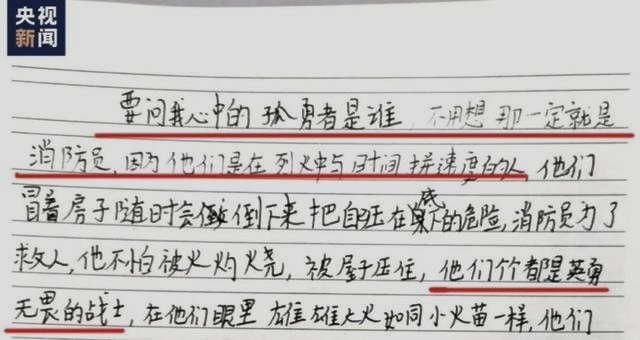 央视
新闻
要问我心中的孤勇者是谁,不用想那一定就是
消防员,因为他们是在烈火中与时间拼速度的人,他们
冒着房子随时会倒下来把自压在底下的危险,消防员为了
救人,他不怕被火灼烧,被屋子压住,他们个个都是英勇
无畏的战士,在他们眼里雄雄大火如同小火苗一样,他们